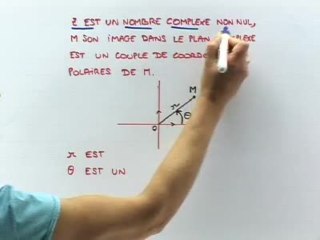 Z EST UN NOMBRE COMPLEXE NON NUL,
M SON IMAGE DANS LE PLAN
EST UN COUPLE DE
POLAIRES DE M.
M
r
θ
O
r EST
θ EST UN